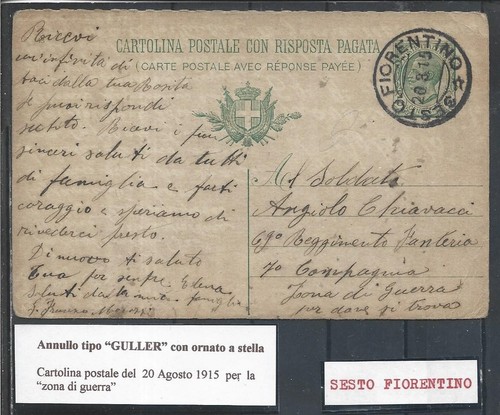 CARTOLINA POSTALE CON RISPOSTA PAGATA
(CARTE POSTALE AVEC RÉPONSE PAYÉE)
SESTO FIORENTINO
20.8.15
Ricevi
un'infinita di
baci dalla tua Rosita
e puoi rispondi
subito. Ricevi i più
sinceri saluti da tutti
di famiglia e fatti
coraggio e speriamo di
rivederci presto.
Di nuovo ti saluto
tua per sempre Elena
Saluti dalla mia famiglia
Al Soldato
Angiolo Chiavacci
69º Reggimento Fanteria
7a Compagnia
Zona di Guerra
per dove si trova
Annullo tipo "GULLER" con ornato a stella
Cartolina postale del 20 Agosto 1915 per la
"zona di guerra"
SESTO FIORENTINO